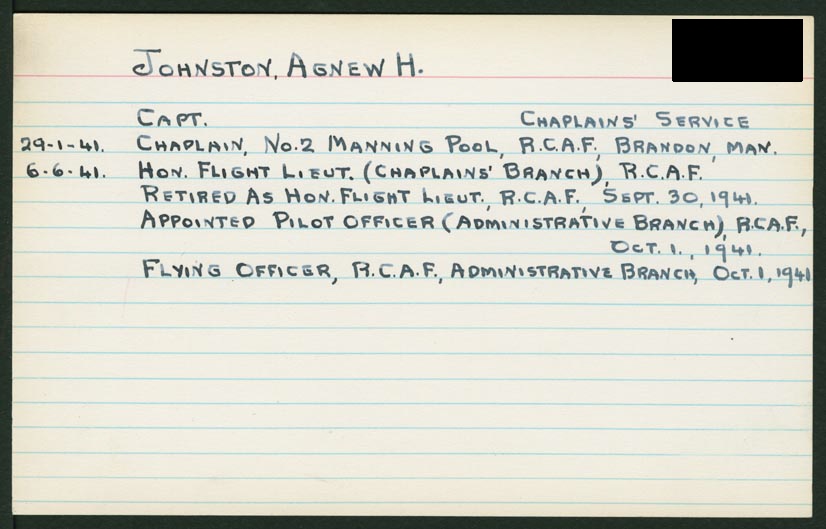 JOHNSTON, AGNEW H.
CAPT. CHAPLAINS' SERVICE
29-1-41. CHAPLAIN, NO.2 MANNING POOL, R.C.A.F., BRANDON, MAN.
6-6-41. HON. FLIGHT LIEUT. (CHAPLAINS' BRANCH), R.C.A.F.
RETIRED AS HON. FLIGHT LIEUT., R.C.A.F., SEPT. 30, 1941.
APPOINTED PILOT OFFICER (ADMINISTRATIVE BRANCH), R.C.A.F.,
OCT. 1., 1941.
FLYING OFFICER, R.C.A.F., ADMINISTRATIVE BRANCH, OCT. 1, 1941